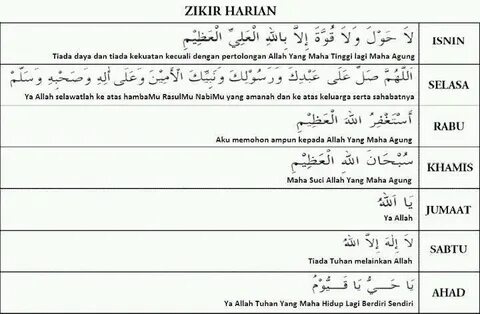 ZIKIR HARIAN
لاَ حَوْلَ وَلاَ قُوَّةَ إِلاَّ بِاللهِ الْعَلِيِّ الْعَظِيْمِ
Tiada daya dan tiada kekuatan kecuali dengan pertolongan Allah Yang Maha Tinggi lagi Maha Agung
ISNIN
اَللَّهُمَّ صَلِّ عَلَى عَبْدِكَ وَرَسُوْلِكَ وَنَبِيِّكَ الْأَمِيْنِ وَعَلَى أَلِهِ وَصَحْبِهِ وَسَلِّمْ
Ya Allah selawatlah ke atas hambaMu RasulMu NabiMu yang amanah dan ke atas keluarga serta sahabatnya
SELASA
أَسْتَغْفِرُ اللهَ الْعَظِيْمَ
Aku memohon ampun kepada Allah Yang Maha Agung
RABU
سُبْحَانَ اللهِ الْعَظِيْمِ
Maha Suci Allah Yang Maha Agung
KHAMIS
يَا اَللهُ
Ya Allah
JUMAAT
لاَ إِلَهَ إِلاَّ اللهُ
Tiada Tuhan melainkan Allah
SABTU
يَا حَيُّ يَا قَيُّوْمُ
Ya Allah Tuhan Yang Maha Hidup Lagi Berdiri Sendiri
AHAD